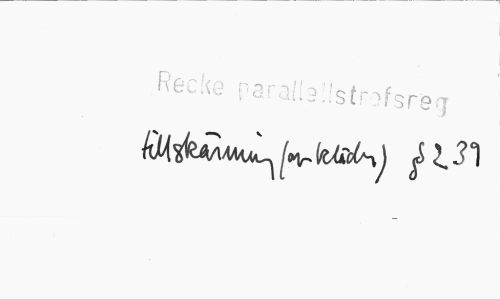 Recke parallellstrofsreg
tillskärning (av kläder) § 239